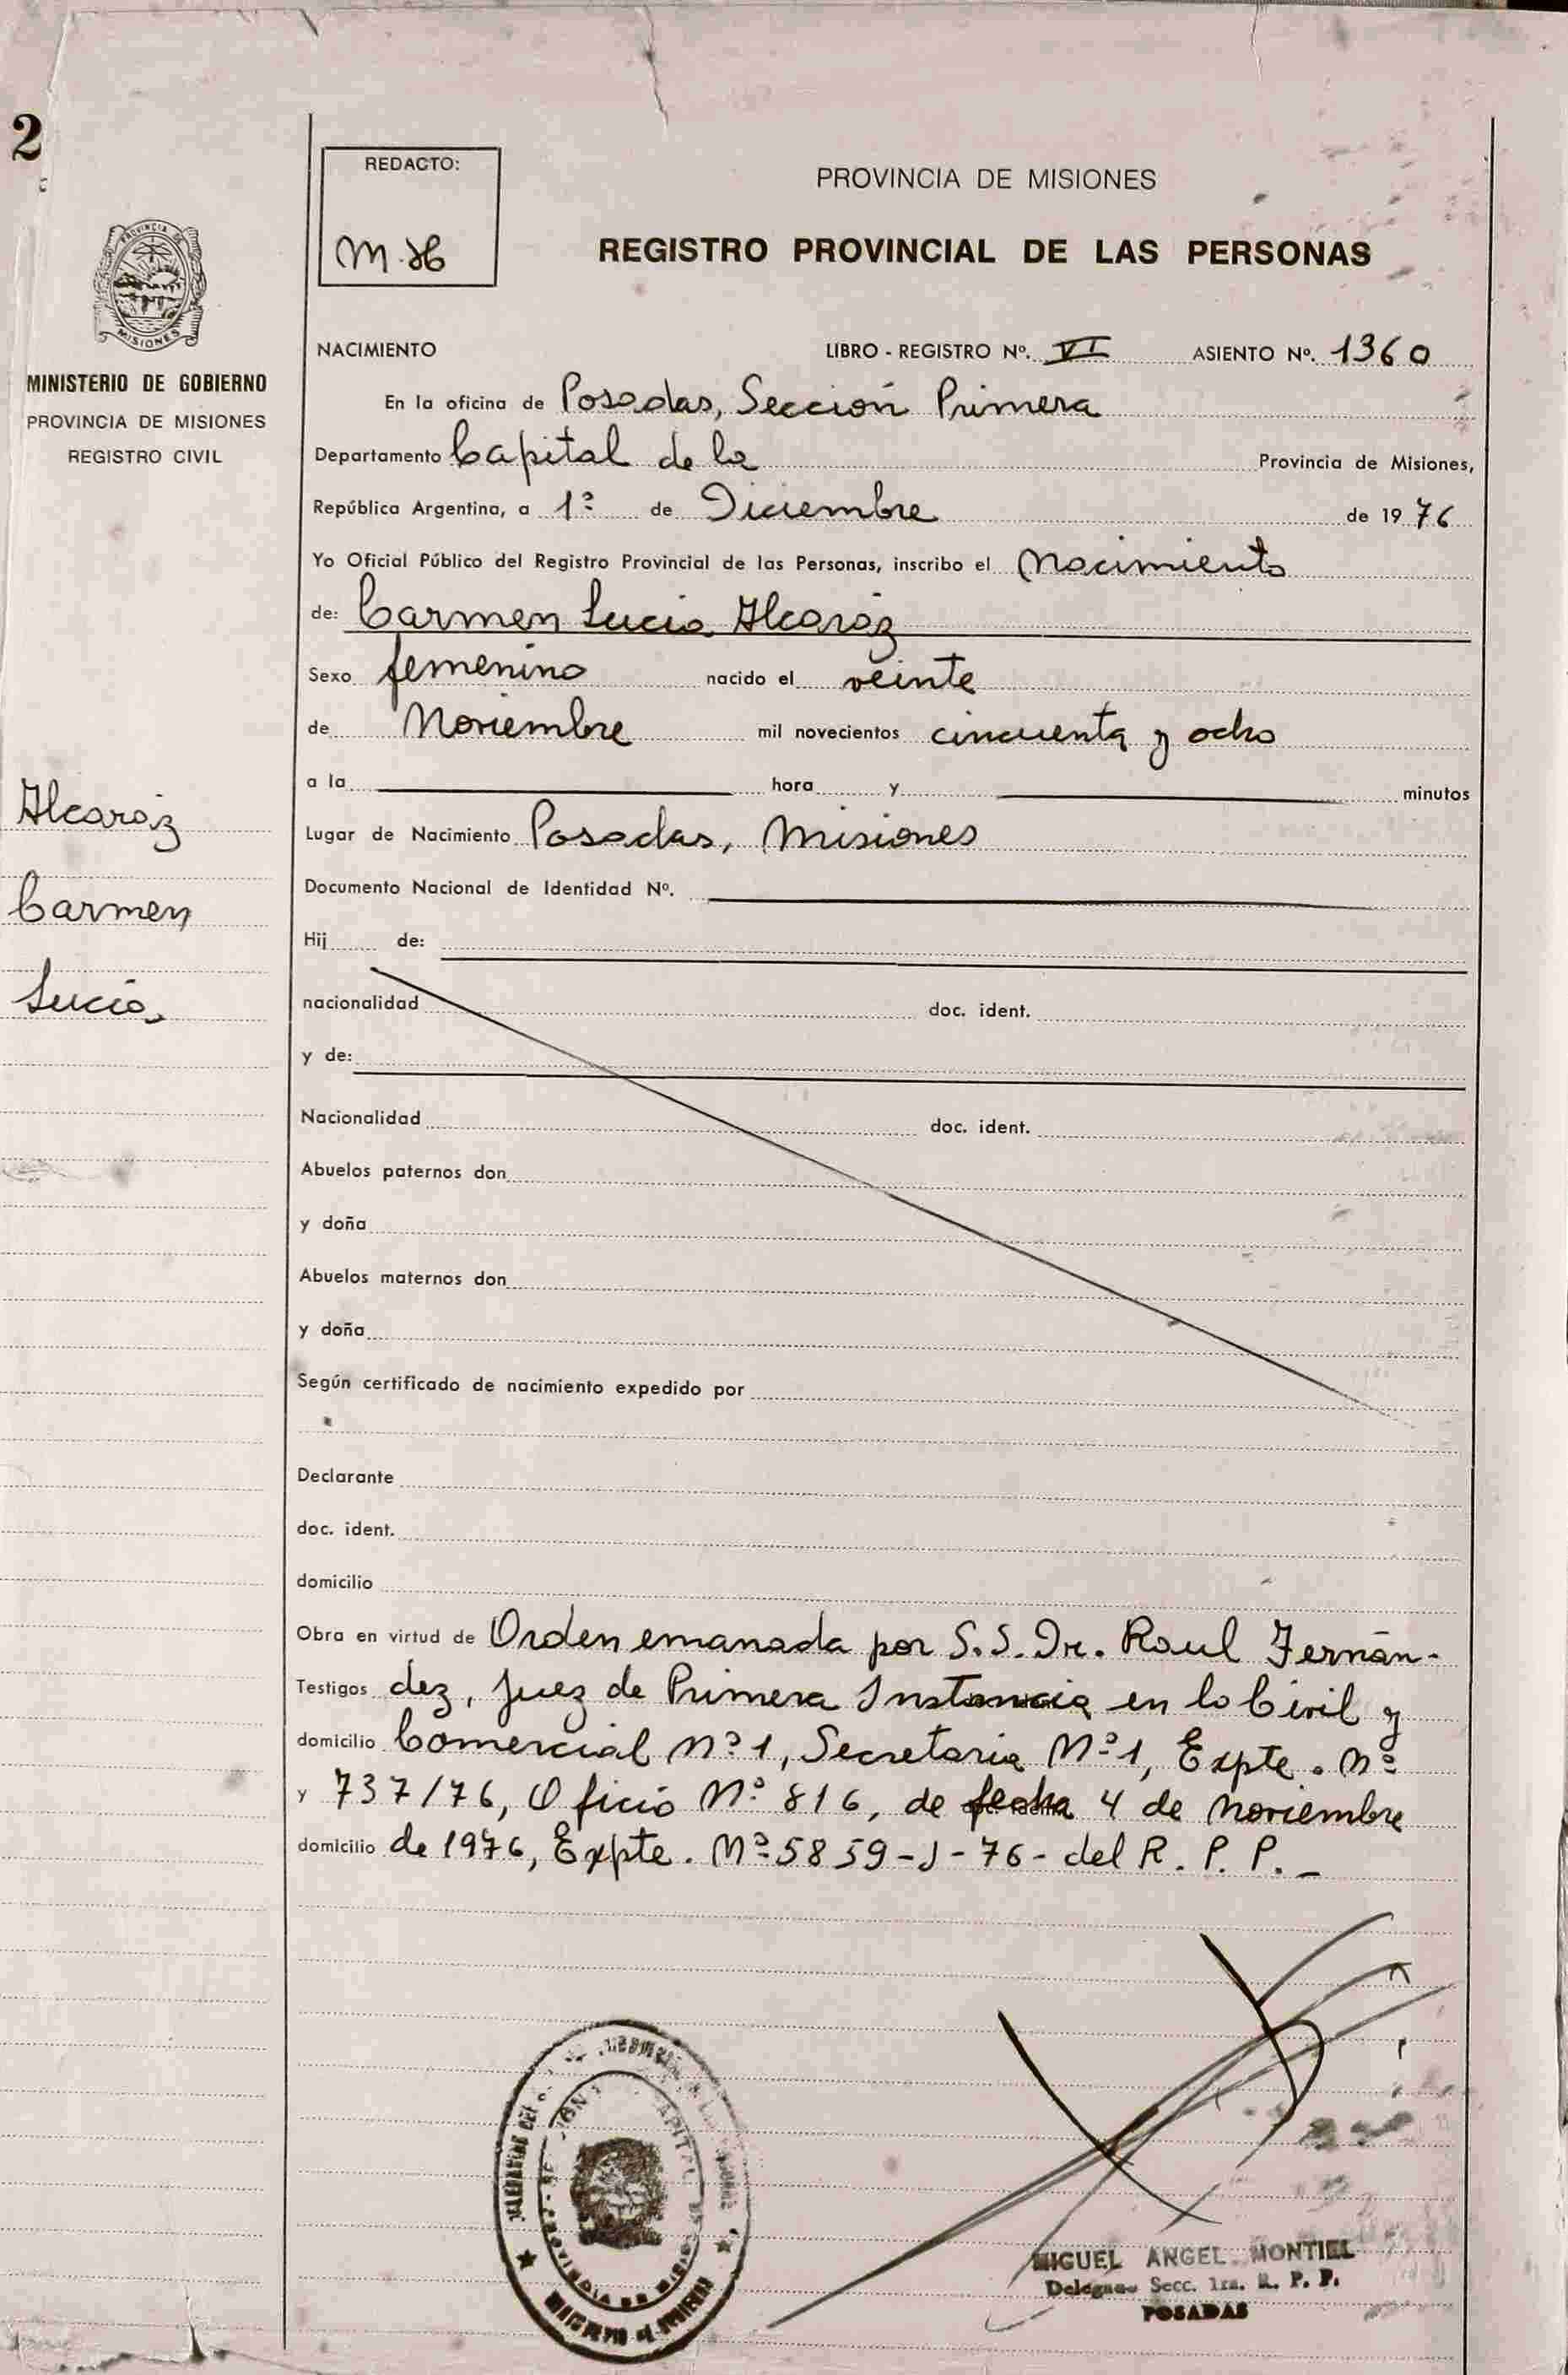 2
REDACTO:
M.H
PROVINCIA DE MISIONES
REGISTRO PROVINCIAL DE LAS PERSONAS
MISIONES
MINISTERIO DE GOBIERNO
PROVINCIA DE MISIONES
REGISTRO CIVIL
NACIMIENTO LIBRO - REGISTRO Nº. VI ASIENTO Nº. 1360
En la oficina de Posadas, Sección Primera
Departamento Capital de la Provincia de Misiones,
República Argentina, a 1º de Diciembre de 1976
Yo Oficial Público del Registro Provincial de las Personas, inscribo el Nacimiento
de: Carmen Lucia Alcaráz
Sexo femenino nacido el veinte
de Noviembre mil novecientos cincuenta y ocho
a la hora y minutos
Alcaráz
Carmen
Lucia
Lugar de Nacimiento Posadas, Misiones
Documento Nacional de Identidad Nº.
Hij de:
nacionalidad doc. ident.
y de:
Nacionalidad doc. ident.
Abuelos paternos don
y doña
Abuelos maternos don
y doña
Según certificado de nacimiento expedido por
Declarante
doc. ident.
domicilio
Obra en virtud de Orden emanada por S.S. Dr. Raul Fernán-
Testigos dez, Juez de Primera Instancia en lo Civil y
domicilio Comercial Nº 1, Secretaria Nº 1, Expte. Nº
y 737/76, Oficio Nº 816, de fecha 4 de Noviembre
domicilio de 1976, Expte. Nº 5859-J-76- del R. P. P. _
MIGUEL ANGEL MONTIEL
Delegado Secc. 1ra. R. P. P.
POSADAS